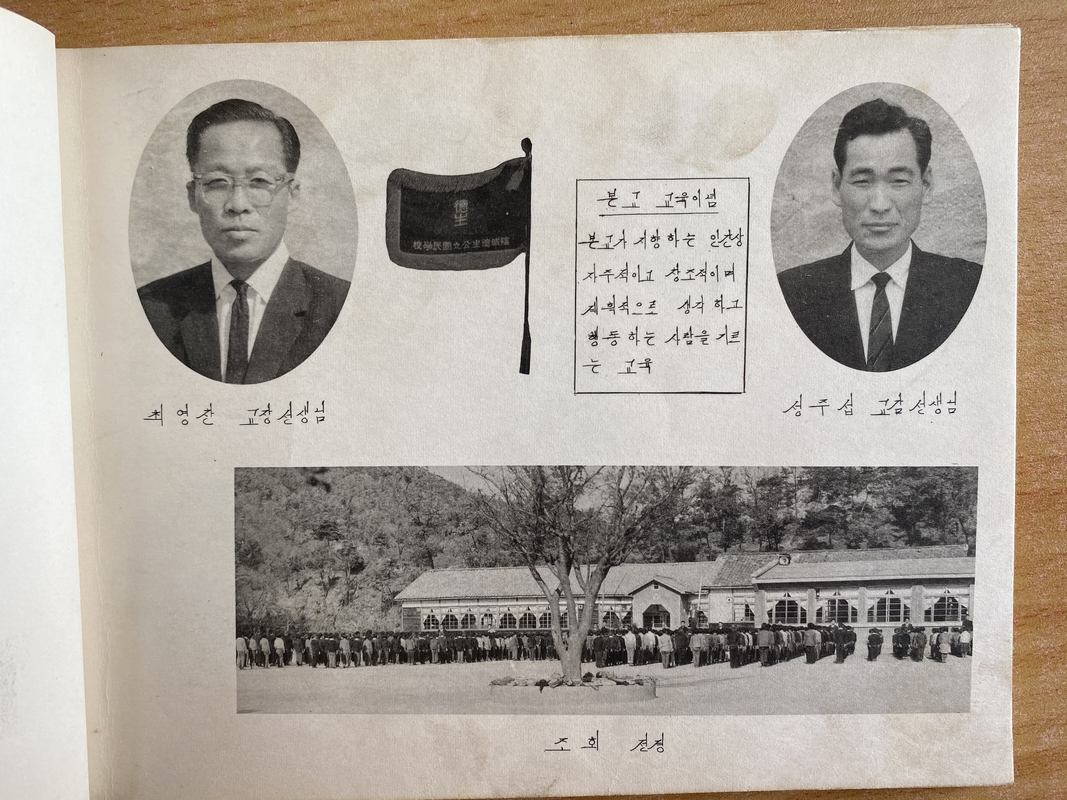 德生
陰城德生公立國民學校
본교 교육이념
본교가 지향 하는 인간상
자주적이고 창조적이며
계획적으로 생각 하고
행동 하는 사람을 기르
는 교육
최 영 찬 교장선생님
성 주 섭 교감선생님
조 회 전경